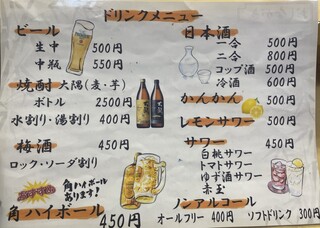 ドリンクメニュー
ビール
生中 500円
中瓶 550円
焼酎 大隅(麦・芋)
ボトル 2500円
水割り・湯割り 400円
梅酒 450円
ロック・ソーダ割り
角ハイボール
あります!
角ハイボール 450円
日本酒
一合 500円
二合 800円
コップ酒 500円
冷酒 600円
かんかん 500円
レモンサワー 500円
サワー 450円
白桃サワー
トマトサワー
ゆず酒サワー
赤玉
ノンアルコール
オールフリー 400円 ソフトドリンク 300円